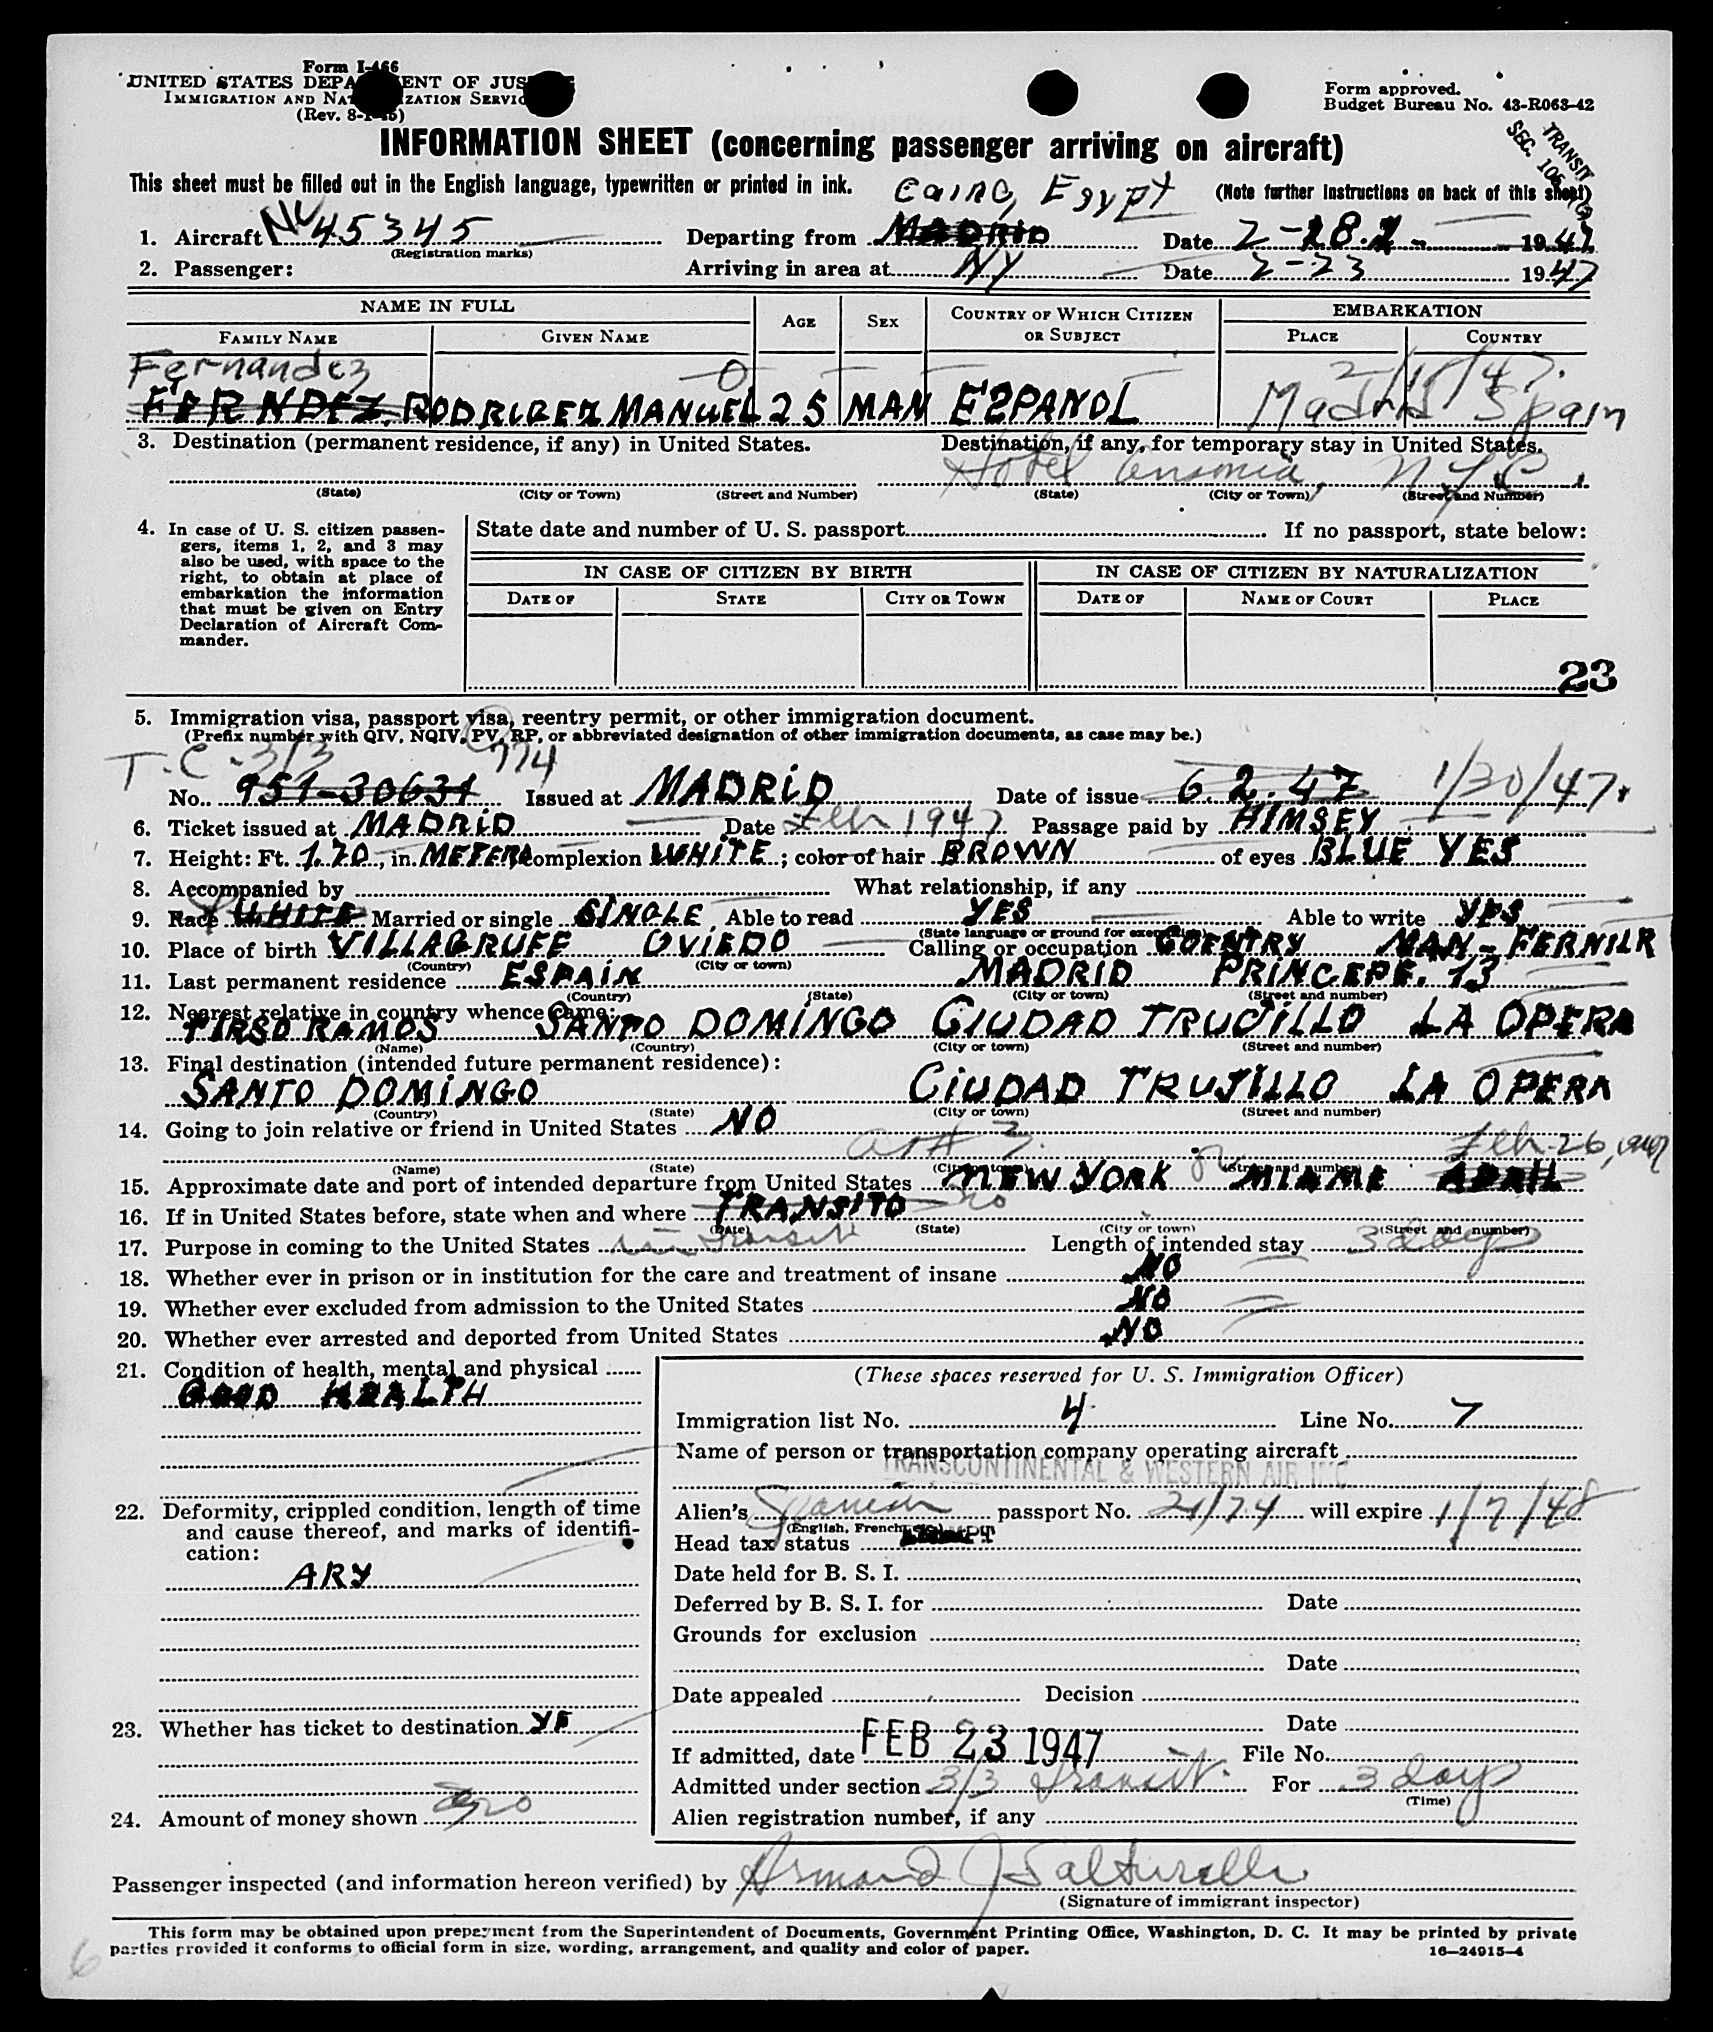 Form I-466
UNITED STATES DEPARTMENT OF JUSTICE
IMMIGRATION AND NATURALIZATION SERVICE
(Rev. 8-1-45)
Form approved.
Budget Bureau No. 43-R063-42
TRANSIT
SEC.
INFORMATION SHEET (concerning passenger arriving on aircraft)
This sheet must be filled out in the English language, typewritten or printed in ink. (Note further instructions on back of this sheet)
Cairo, Egypt
1. Aircraft NC 45345 Departing from MADRID Date 2-18 1947
(Registration marks)
2. Passenger: Arriving in area at NY Date 2-23 1947
NAME IN FULL AGE SEX COUNTRY OF WHICH CITIZEN OR SUBJECT EMBARKATION
FAMILY NAME GIVEN NAME PLACE COUNTRY
Fernandez 0 2/18/47.
FERNDEZ. RODRIGEZ MANUEL 25 MAN ESPANOL Madrid Spain
3. Destination (permanent residence, if any) in United States. Destination, if any, for temporary stay in United States.
Hotel Ansonia, N.Y.C.
(State) (City or Town) (Street and Number) (State) (City or Town) (Street and Number)
4. In case of U. S. citizen passengers, items 1, 2, and 3 may also be used, with space to the right, to obtain at place of embarkation the information that must be given on Entry Declaration of Aircraft Commander.
State date and number of U. S. passport If no passport, state below:
IN CASE OF CITIZEN BY BIRTH IN CASE OF CITIZEN BY NATURALIZATION
DATE OF STATE CITY OR TOWN DATE OF NAME OF COURT PLACE
23
5. Immigration visa, passport visa, reentry permit, or other immigration document.
(Prefix number with QIV, NQIV, PV, RP, or abbreviated designation of other immigration documents, as case may be.)
T.C - 3/3 774
No. 951-30631 Issued at MADRID Date of issue 6.2.47 1/30/47.
6. Ticket issued at MADRID Date Feb 1947 Passage paid by HIMSEY
7. Height: Ft. 1.70, in. METERS; complexion WHITE; color of hair BROWN of eyes BLUE YES
8. Accompanied by What relationship, if any
9. Race WHITE Married or single SINGLE Able to read YES Able to write YES
(State language or ground for exemption)
10. Place of birth VILLAGRUFE OVIEDO Calling or occupation COENTRY MAN - FERNILR
(Country) (City or town)
11. Last permanent residence ESPAIN MADRID PRINCEPE. 13
(Country) (State) (City or town) (Street and number)
12. Nearest relative in country whence came:
TIRSO RAMOS SANTO DOMINGO CIUDAD TRUJILLO LA OPERA
(Name) (Country) (City or town) (Street and number)
13. Final destination (intended future permanent residence):
SANTO DOMINGO CIUDAD TRUJILLO LA OPERA
(Country) (State) (City or town) (Street and number)
14. Going to join relative or friend in United States NO
Art 3. Feb. 26, 1947
(Name) (State) (City or town) (Street and number)
15. Approximate date and port of intended departure from United States NEW YORK or MIAME APRIL
16. If in United States before, state when and where TRANSITO no
(Date) (State) (City or town) (Street and number)
17. Purpose in coming to the United States in transit Length of intended stay 3 days
18. Whether ever in prison or in institution for the care and treatment of insane NO
19. Whether ever excluded from admission to the United States NO
20. Whether ever arrested and deported from United States NO
21. Condition of health, mental and physical
GOOD HEALTH
22. Deformity, crippled condition, length of time and cause thereof, and marks of identification:
ARY
23. Whether has ticket to destination YE
24. Amount of money shown
(These spaces reserved for U. S. Immigration Officer)
Immigration list No. 4 Line No. 7
Name of person or transportation company operating aircraft
TRANSCONTINENTAL & WESTERN AIR INC
Alien's Spanish passport No. 21/74 will expire 1/7/48
(English, French, etc.)
Head tax status
Date held for B. S. I.
Deferred by B. S. I. for Date
Grounds for exclusion
Date
Date appealed Decision
Date
If admitted, date FEB 23 1947 File No.
Admitted under section 3/3 transit. For 3 days
(Time)
Alien registration number, if any
Passenger inspected (and information hereon verified) by Armand J Salturelli
(Signature of immigrant inspector)
This form may be obtained upon prepayment from the Superintendent of Documents, Government Printing Office, Washington, D. C. It may be printed by private
parties provided it conforms to official form in size, wording, arrangement, and quality and color of paper. 16—24915-4
6